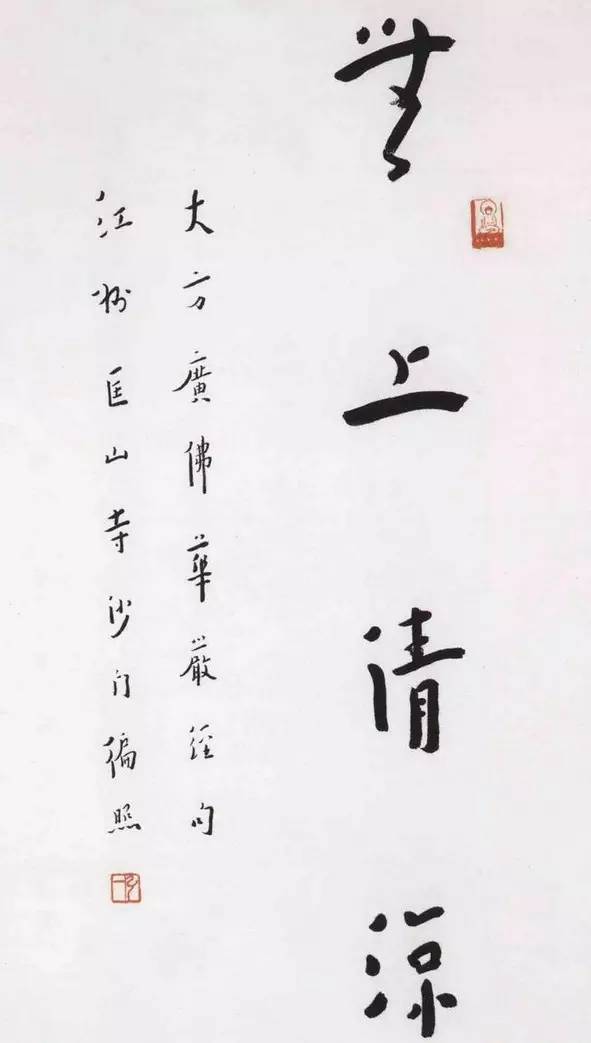 無上清涼
大方廣佛華嚴經句
江州匡山寺沙门徧照
弘一